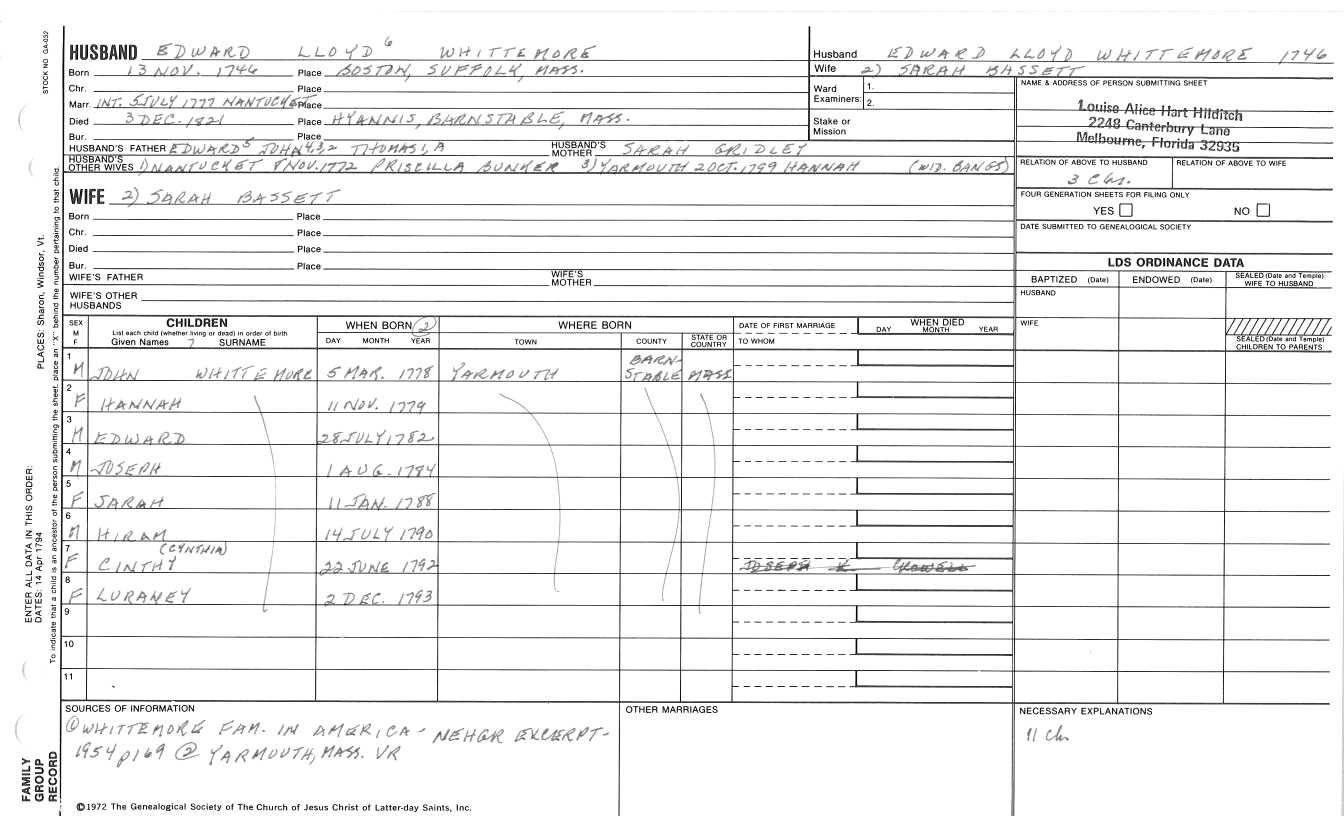 STOCK NO. GA-052
HUSBAND EDWARD LLOYD 6 WHITTEMORE
Born 13 NOV. 1746 Place BOSTON, SUFFOLK, MASS.
Chr. Place
Marr. INT. 5 JULY 1777 NANTUCKET Place
Died 3 DEC. 1821 Place HYANNIS, BARNSTABLE, MASS.
Bur. Place
HUSBAND'S FATHER EDWARD5 JOHN4,3,2 THOMAS1,A HUSBAND'S MOTHER SARAH GRIDLEY
HUSBAND'S OTHER WIVES 1) NANTUCKET 8 NOV. 1772 PRISCILLA BUNKER 3) YARMOUTH 2 OCT. 1799 HANNAH (WID. BANGS)
WIFE 2) SARAH BASSETT
Born Place
Chr. Place
Died Place
Bur. Place
WIFE'S FATHER WIFE'S MOTHER
WIFE'S OTHER HUSBANDS
Husband EDWARD LLOYD WHITTEMORE 1746
Wife 2) SARAH BASSETT
Ward Examiners: 1. 2.
Stake or Mission
NAME & ADDRESS OF PERSON SUBMITTING SHEET
Louise Alice Hart Hilditch
2248 Canterbury Lane
Melbourne, Florida 32935
RELATION OF ABOVE TO HUSBAND RELATION OF ABOVE TO WIFE
3 C 6r.
FOUR GENERATION SHEETS FOR FILING ONLY
YES NO
DATE SUBMITTED TO GENEALOGICAL SOCIETY
LDS ORDINANCE DATA
BAPTIZED (Date) ENDOWED (Date) SEALED (Date and Temple) WIFE TO HUSBAND
HUSBAND
WIFE
SEALED (Date and Temple) CHILDREN TO PARENTS
SEX M F CHILDREN List each child (whether living or dead) in order of birth Given Names 7 SURNAME
WHEN BORN 2 DAY MONTH YEAR
WHERE BORN TOWN COUNTY STATE OR COUNTRY
DATE OF FIRST MARRIAGE TO WHOM
WHEN DIED DAY MONTH YEAR
1 M JOHN WHITTEMORE 5 MAR. 1778 YARMOUTH BARN-STABLE MASS
2 F HANNAH 11 NOV. 1779
3 M EDWARD 28 JULY 1782
4 M JOSEPH 1 AUG. 1784
5 F SARAH 11 JAN. 1788
6 M HIRAM 14 JULY 1790
7 F CINTHY (CYNTHIA) 22 JUNE 1792 JOSEPH K CROWELL
8 F LURANEY 2 DEC. 1793
9
10
11
SOURCES OF INFORMATION
① WHITTEMORE FAM. IN AMERICA - NEHGR EXCERPT-
1954 p169 ② YARMOUTH, MASS. VR
OTHER MARRIAGES
NECESSARY EXPLANATIONS
11 ch
©1972 The Genealogical Society of The Church of Jesus Christ of Latter-day Saints, Inc.
PLACES: Sharon, Windsor, Vt.
ENTER ALL DATA IN THIS ORDER:
DATES: 14 Apr 1794
To indicate that a child is an ancestor of the person submitting the sheet, place an "X" behind the number pertaining to that child
FAMILY
GROUP
RECORD